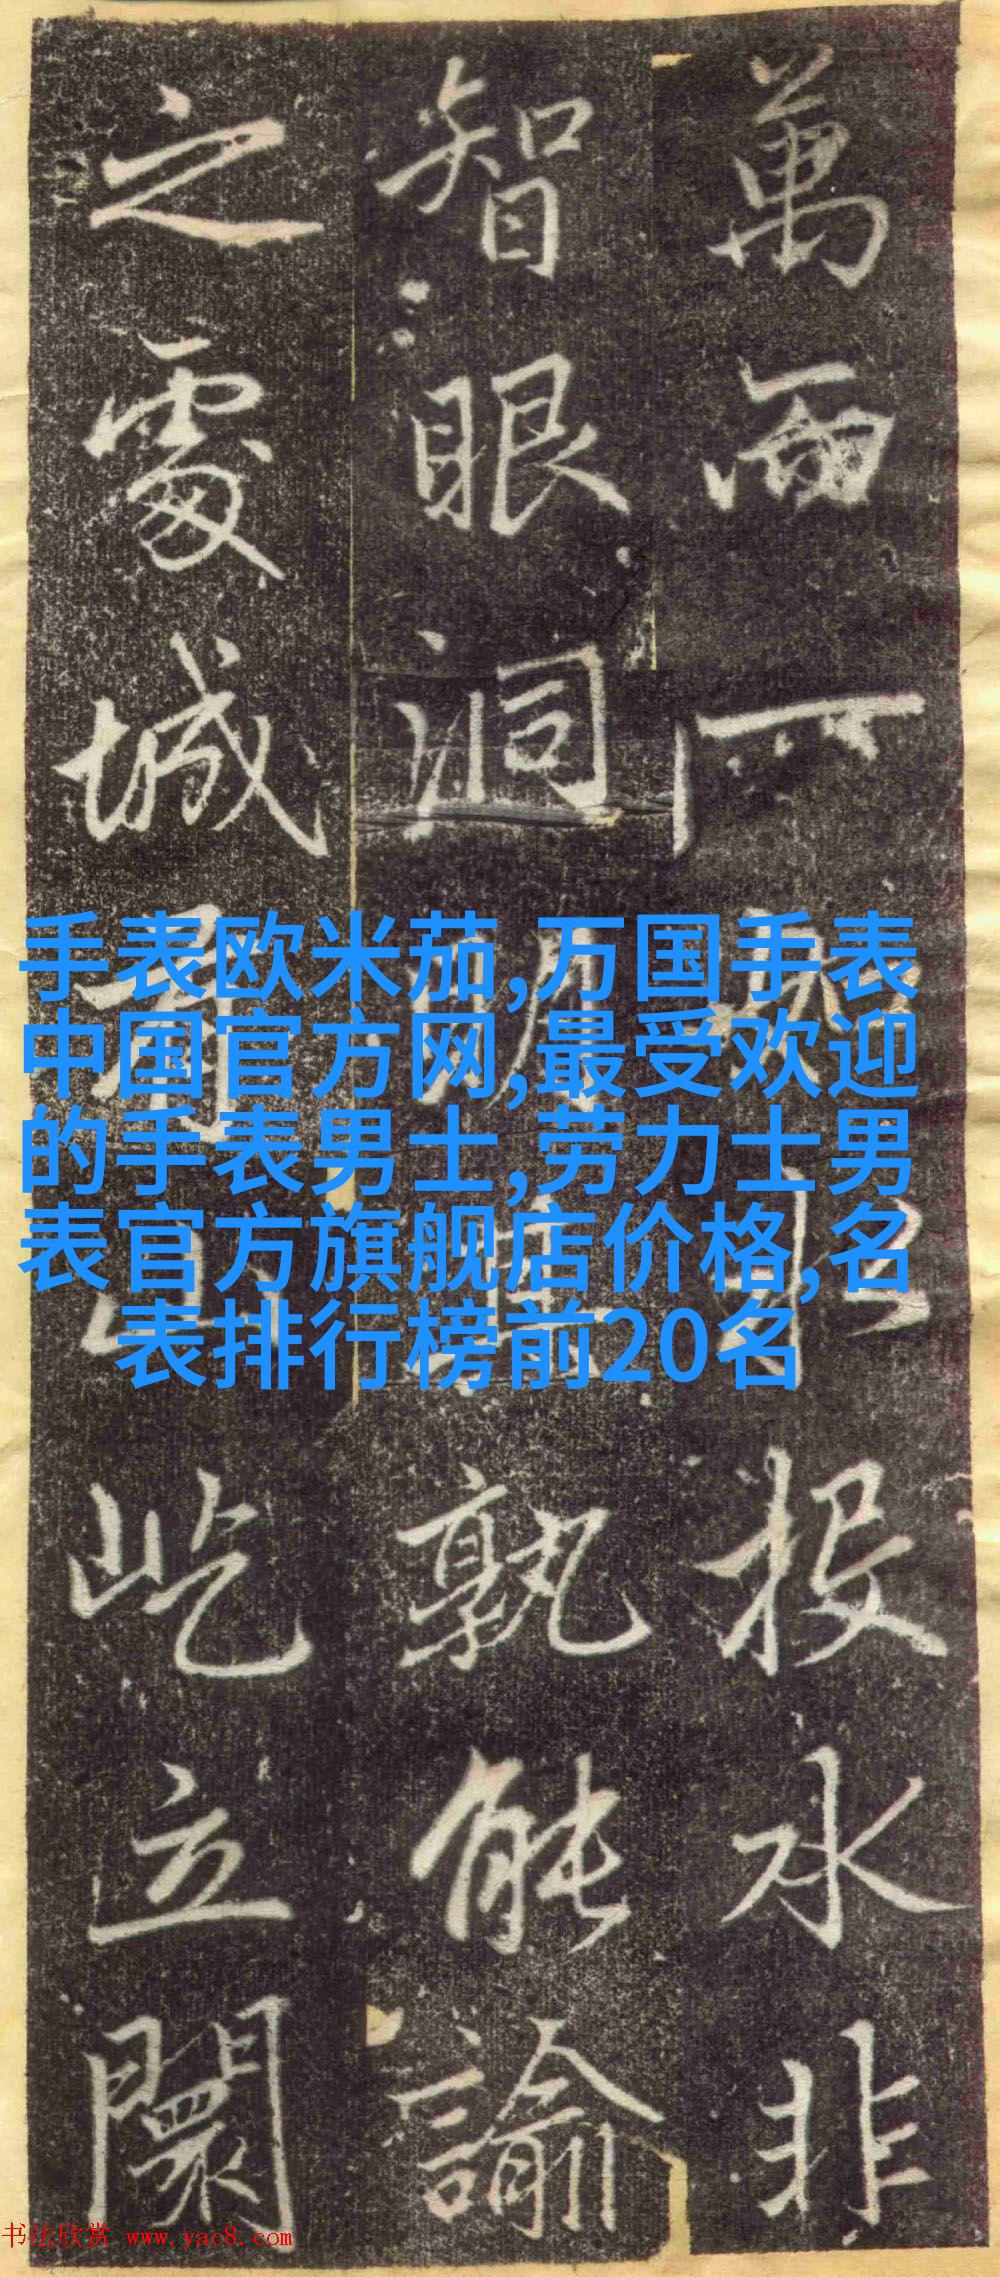 萬 投水非
智眼洞 孰能諭
之處城 屹立闤
手表欧米茄,万国手表
中国官方网,最受欢迎
的手表男士,劳力士男
表官方旗舰店价格,名
表排行榜前20名
书法欣赏 www.yac8.com